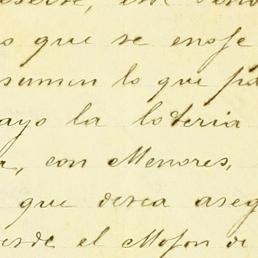 o que se enoje
sumen lo que pa
ayo la loteria
a, con Menores,
que desea aseg
esde el Mojon de